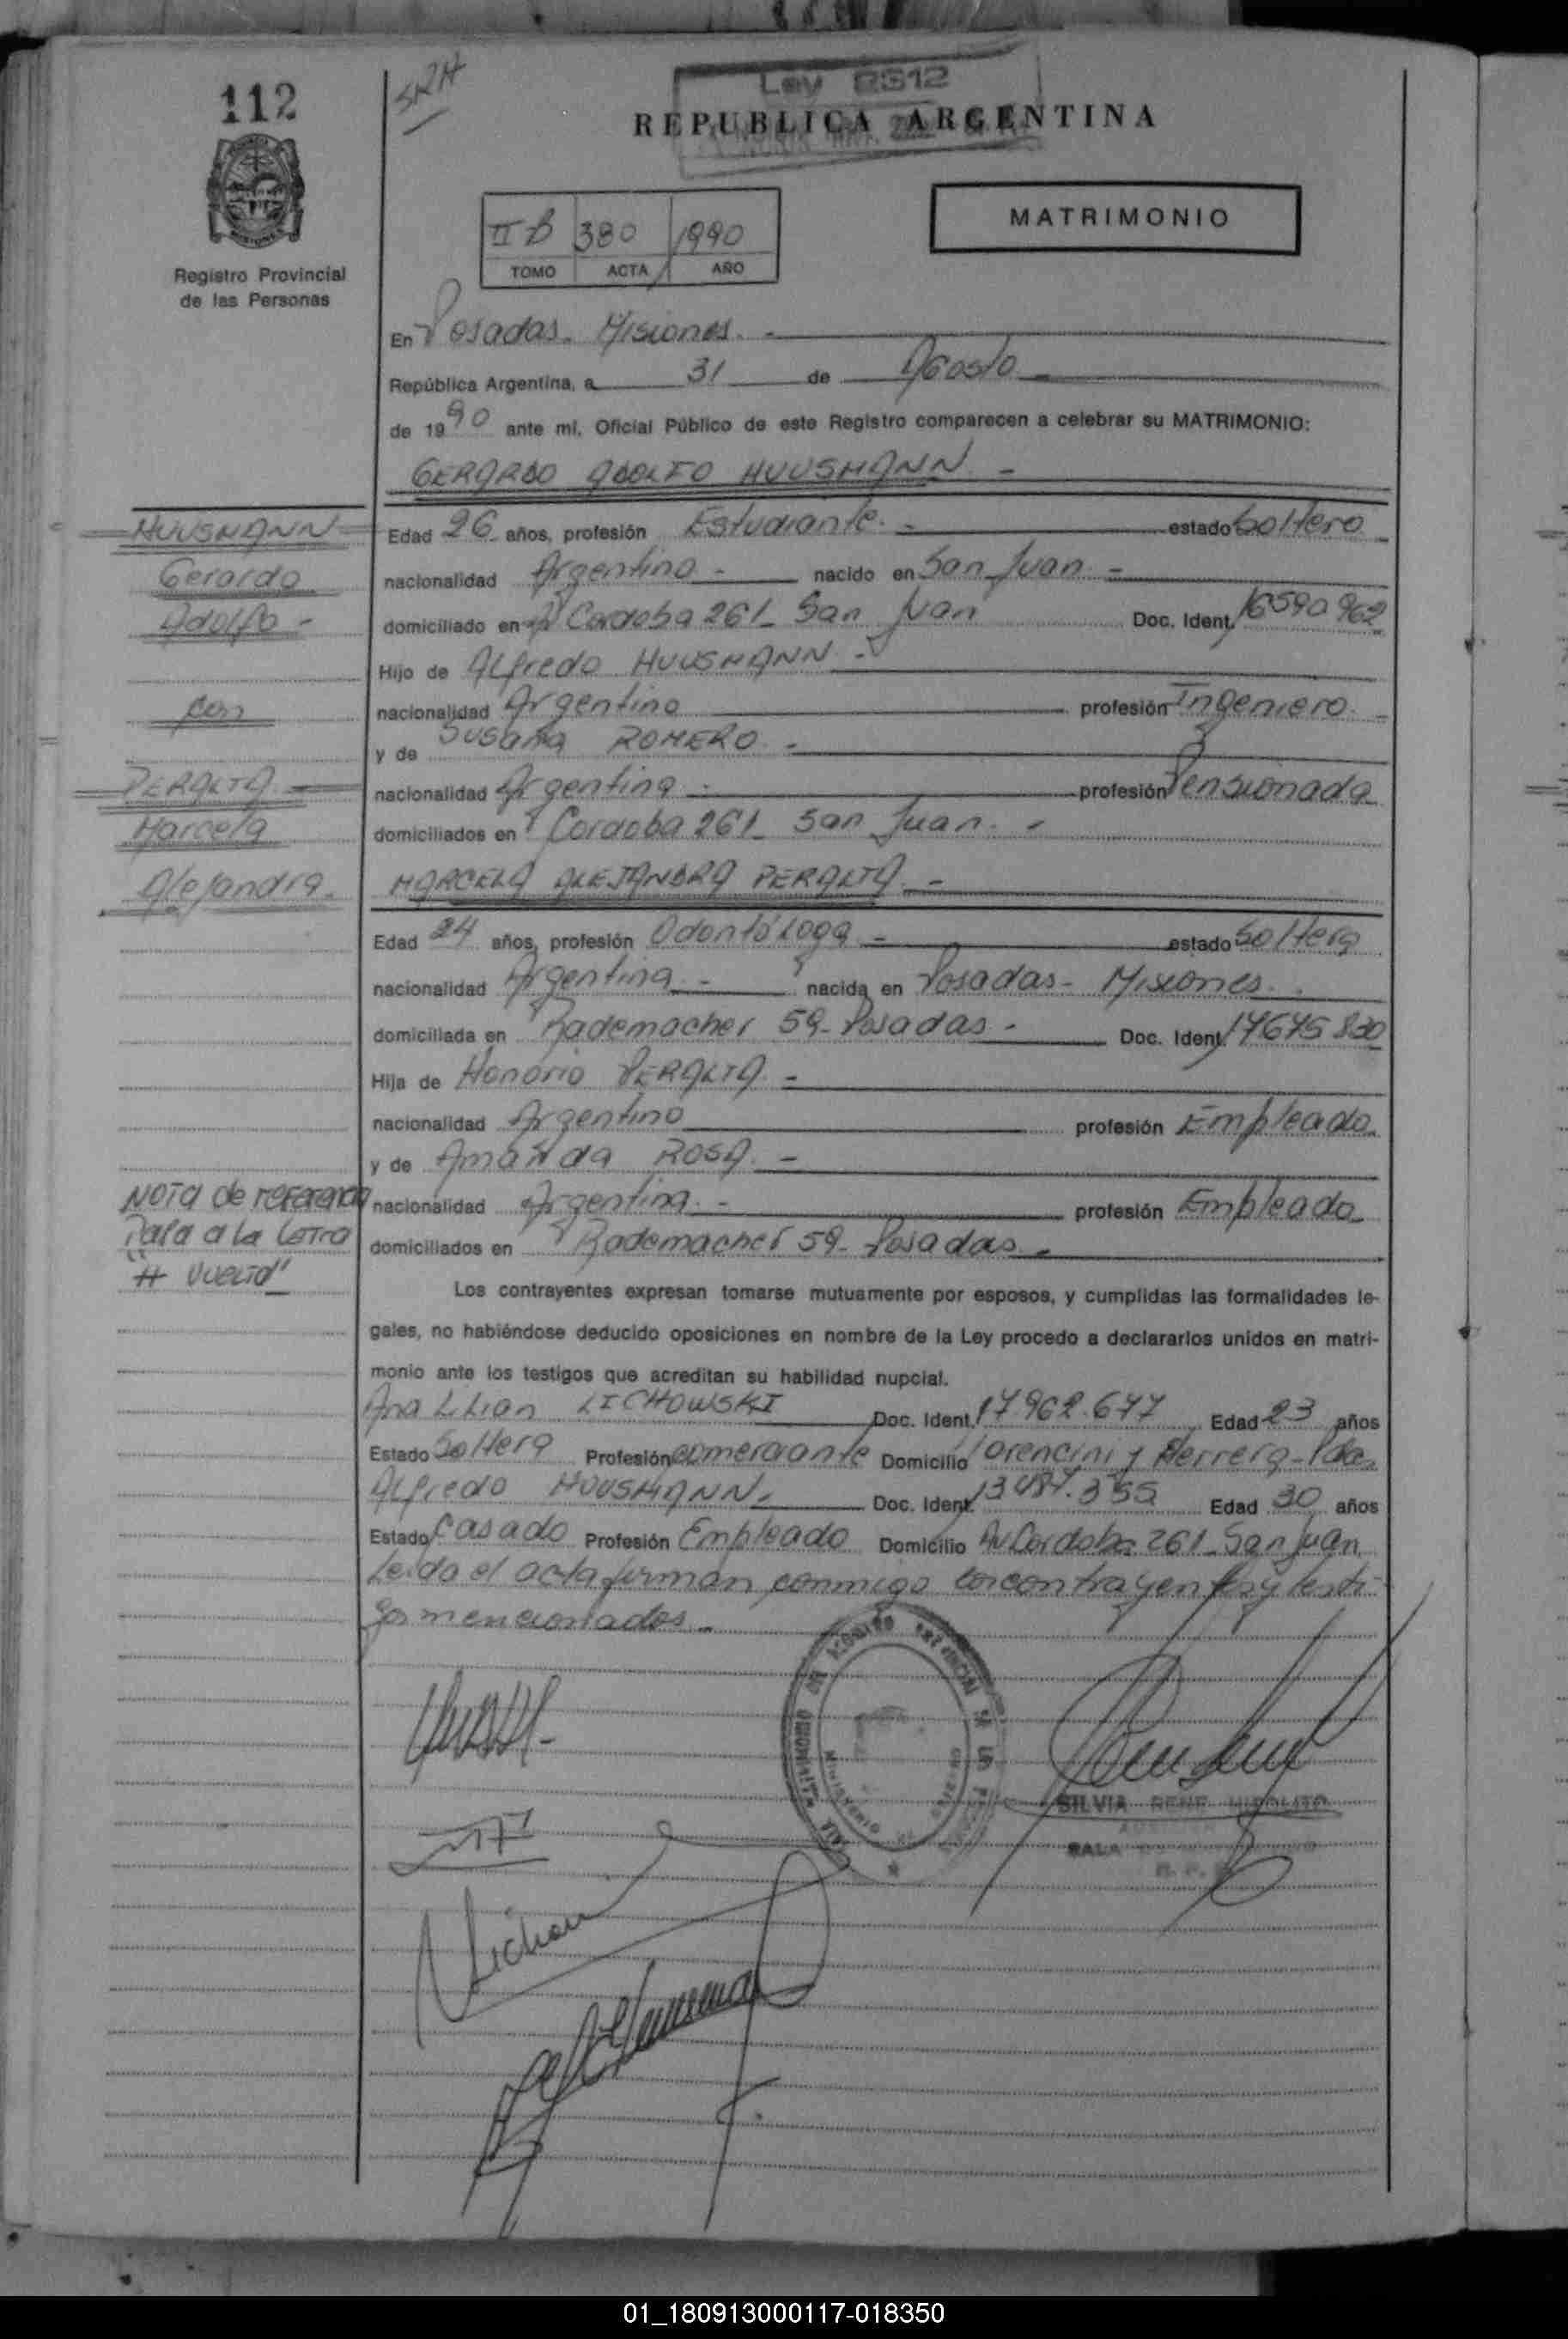 112
SRH
Ley 2312
REPUBLICA ARGENTINA
MATRIMONIO
II B 380 1990
TOMO ACTA AÑO
Registro Provincial
de las Personas
En Posadas. Misiones. -
República Argentina, a 31 de Agosto
de 1990 ante mi, Oficial Público de este Registro comparecen a celebrar su MATRIMONIO:
GERARDO ADOLFO HUUSMANN -
HUUSMANN
Gerardo
Adolfo -
con
PERALTA
Marcela
Alejandra.
Edad 26 años, profesión Estudiante. - estado Soltero
nacionalidad Argentino - nacido en San Juan -
domiciliado en Cordoba 261 - San Juan Doc. Ident. 16590962
Hijo de Alfredo HUUSMANN -
nacionalidad Argentino profesión Ingeniero. -
y de Susana ROMERO -
nacionalidad Argentina - profesión Pensionada
domiciliados en Cordoba 261 - San Juan. -
MARCELA ALEJANDRA PERALTA -
Edad 24 años, profesión Odontóloga - estado Soltera
nacionalidad Argentina - nacida en Posadas - Misiones.
domiciliada en Rademacher 59 - Posadas - Doc. Ident. 17675830
Hija de Honorio PERALTA -
nacionalidad Argentino profesión Empleado
y de Amanda ROSA -
nacionalidad Argentina. - profesión Empleada
domiciliados en Rademacher 59 - Posadas -
Nota de referencia
Pasa a la Letra
"A vuelta"
Los contrayentes expresan tomarse mutuamente por esposos, y cumplidas las formalidades le-
gales, no habiéndose deducido oposiciones en nombre de la Ley procedo a declararlos unidos en matri-
monio ante los testigos que acreditan su habilidad nupcial.
Ana Lilian LICHOWSKI Doc. Ident. 17.962.677 Edad 23 años
Estado Soltera Profesión comerciante Domicilio Lorencini y Herrera - Pdas
Alfredo HUUSMANN - Doc. Ident. 13.487.355 Edad 30 años
Estado Casado Profesión Empleado Domicilio Av Cordoba 261 - San Juan
Leida el acta firman conmigo los contrayentes y testi-
gos mencionados -
SILVIA RENE HIPOLITO
SALA
01_180913000117-018350